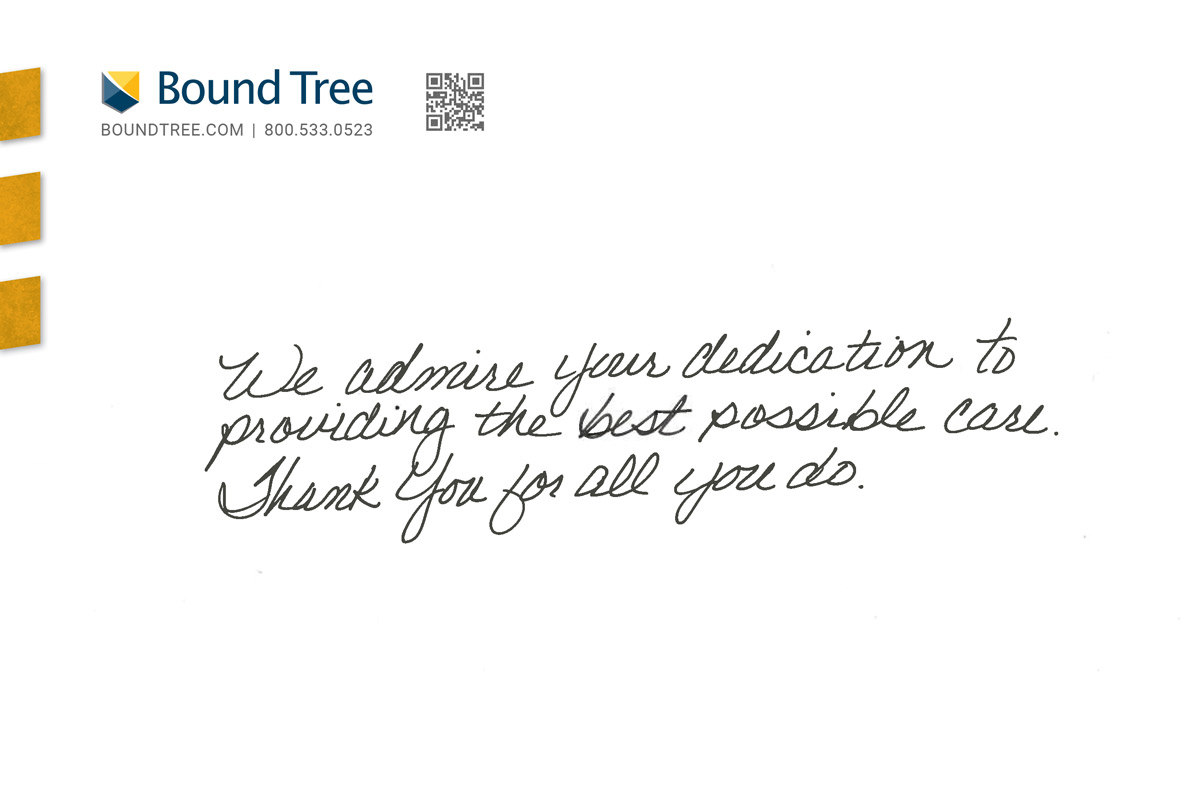 Bound Tree
BOUNDTREE.COM | 800.533.0523
We admire your dedication to
providing the best possible care.
Thank You for all you do.